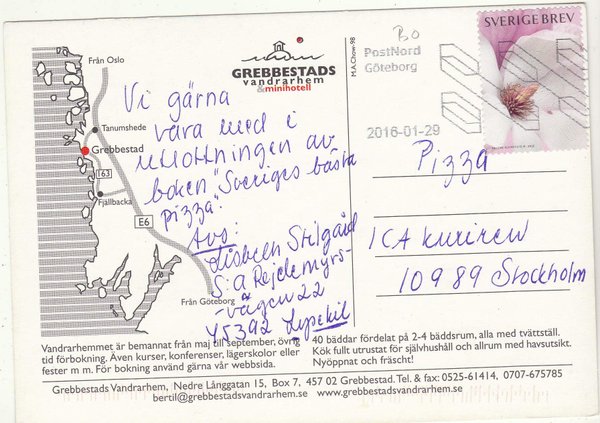 M.A.Chow-98
Från Oslo
Tanumshede
Grebbestad
163
Fjällbacka
E6
Från Göteborg
GREBBESTADS
vandrarhem
&minihotell
Vi gärna
vara med i
utlottningen av
boken "Sveriges bästa
pizza".
Avs:
Lisbeth Stilgård
S:a
vägen 22
45392 Lysekil
BO
PostNord
Göteborg
2016-01-29
SVERIGE BREV
Pizza
ICA kuriren
10989 Stockholm
Vandrarhemmet är bemannat från maj till september, övrig
tid förbokning. Även kurser, konferenser, lägerskolor eller
fester m m. För bokning använd gärna vår webbsida.
40 bäddar fördelat på 2-4 bäddsrum, alla med tvättställ.
Kök fullt utrustat för självhushåll och allrum med havsutsikt.
Nyöppnat och fräscht!
Grebbestads Vandrarhem, Nedre Långgatan 15, Box 7, 457 02 Grebbestad. Tel. & fax: 0525-61414, 0707-675785
bertil@grebbestadsvandrarhem.se www.grebbestadsvandrarhem.se